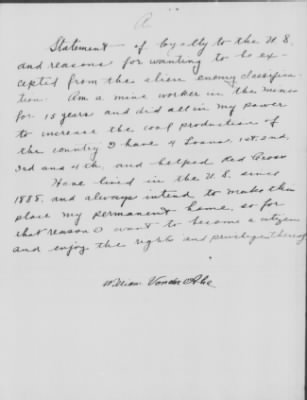 A
Statement of loyalty to the U.S.
and reasons for wanting to be ex-
cepted from the alien enemy classifica-
tion. Am a mine worker in the mines
for 15 years and did all in my power
to increase the coal production of
the country I have 4 Loans, 1st, 2nd,
3rd and 4th, and helped Red Cross
Have lived in the U.S. since
1888, and always intend to make this
place my permanent home, so for
that reason I want to become a citizen
and enjoy the rights and privileges thereof
William